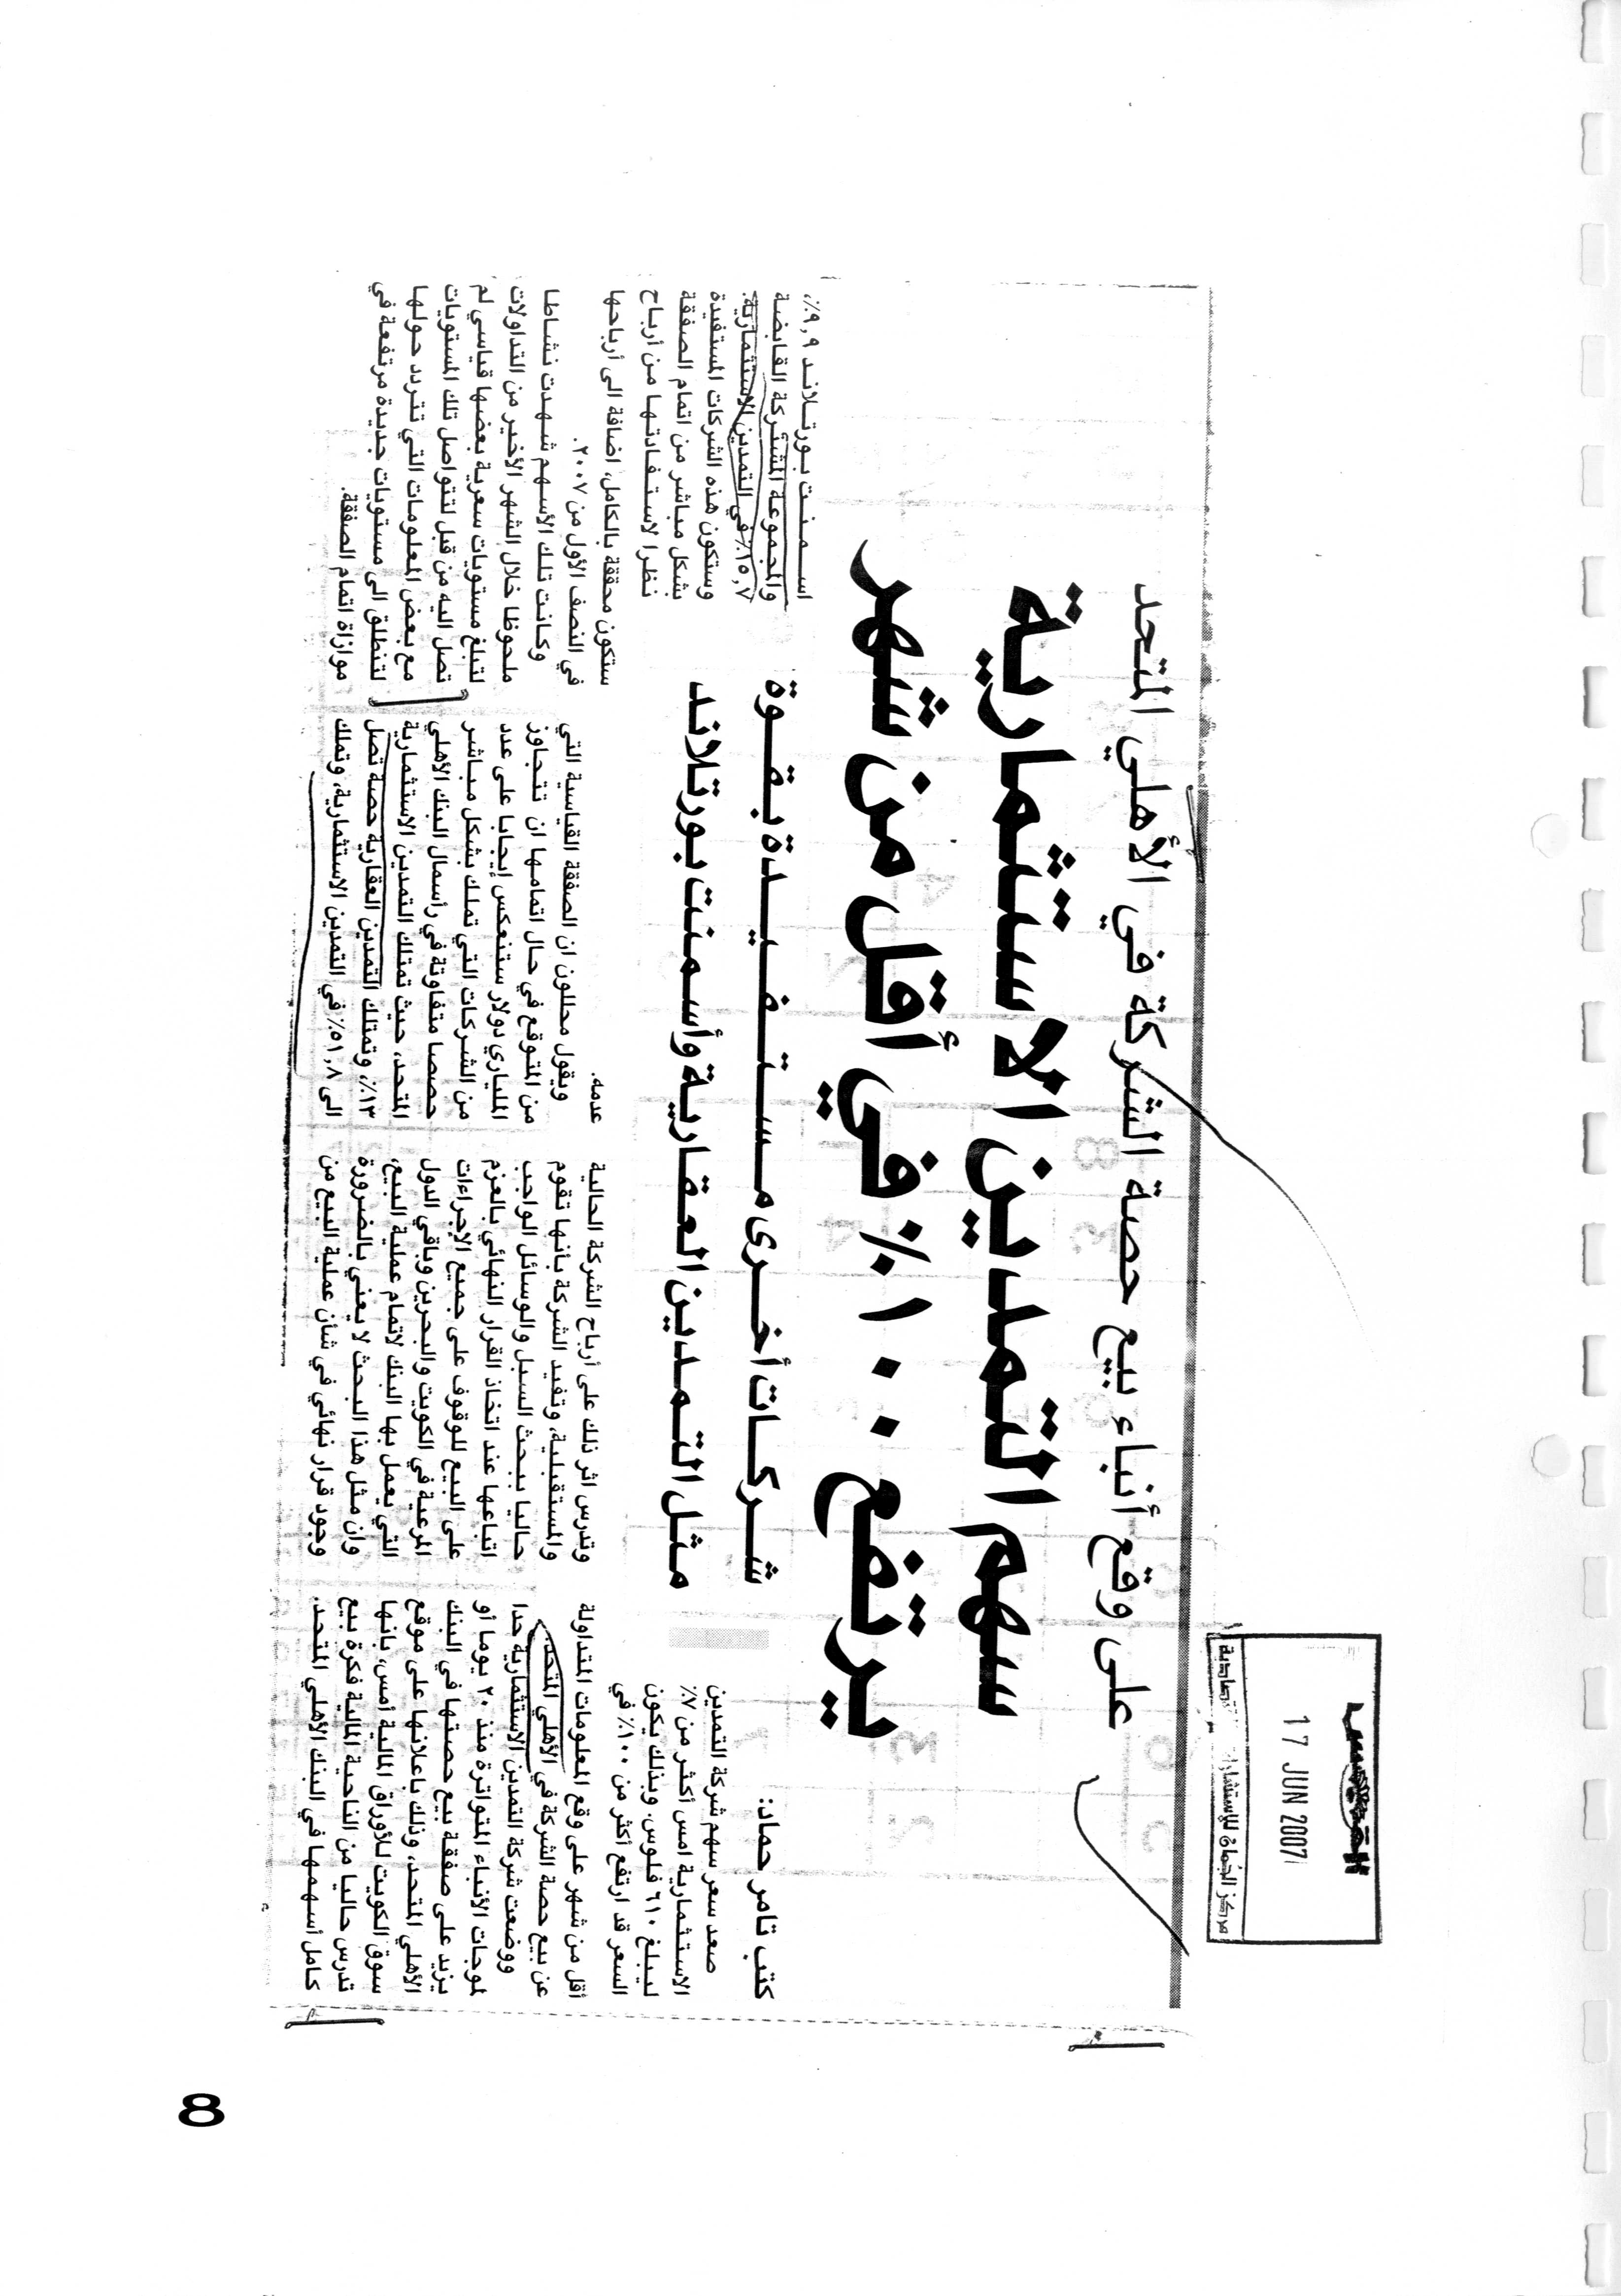 القبس
17 JUN 2007
مركز الجُمان للإستشارات
على وقع أنباء بيع حصة الشركة في الأهلي المتحد
سهم التمدين الاستثمارية
يرتفع ١٠٠٪ في أقل من شهر
شركات أخرى مستفيدة بقوة
مثل التمدين العقارية وأسمنت بورتلاند
كتب تامر حماد:
صعد سعر سهم شركة التمدين
الاستثمارية امس أكثر من ٧٪
ليبلغ ٦١٠ فلوس، وبذلك يكون
السعر قد ارتفع أكثر من ١٠٠٪ في
أقل من شهر على وقع المعلومات المتداولة
عن بيع حصة الشركة في الأهلي المتحد.
ووضعت شركة التمدين الاستثمارية حدا
لموجات الأنباء المتواترة منذ ٢٠ يوما أو
يزيد على صفقة بيع حصتها في البنك
الأهلي المتحد، وذلك باعلانها على موقع
سوق الكويت للأوراق المالية أمس، بانها
تدرس حاليا من الناحية المالية فكرة بيع
كامل أسهمها في البنك الأهلي المتحد.
وتدرس اثر ذلك على أرباح الشركة الحالية
والمستقبلية، وتفيد الشركة بأنها تقوم
حاليا ببحث السبل والوسائل الواجب
اتباعها عند اتخاذ القرار النهائي بالعزم
على البيع للوقوف على جميع الإجراءات
المرعية في الكويت والبحرين وباقي الدول
التي يعمل بها البنك لاتمام عملية البيع،
وان مثل هذا البحث لا يعني بالضرورة
وجود قرار نهائي في شأن عملية البيع من
عدمه.
ويقول محللون ان الصفقة القياسية التي
من المتوقع في حال اتمامها ان تتجاوز
الملياري دولار ستنعكس إيجابا على عدد
من الشركات التي تملك بشكل مباشر
حصصا متفاوتة في رأسمال البنك الأهلي
المتحد، حيث تمتلك التمدين الاستثمارية
١٣٪، وتمتلك التمدين العقارية حصة تصل
الى ٥١,٨٪ في التمدين الاستثمارية، وتملك
اسمنت بورتلاند ٩,٩٪،
والمجموعة المشتركة القابضة
١٥,٧٪ في التمدين الاستثمارية.
وستكون هذه الشركات المستفيدة
بشكل مباشر من اتمام الصفقة
نظرا لاستفادتها من أرباح
ستكون محققة بالكامل، اضافة الى أرباحها
في النصف الأول من ٢٠٠٧.
وكانت تلك الأسهم شهدت نشاطا
ملحوظا خلال الشهر الأخير من التداولات
لتبلغ مستويات سعرية بعضها قياسي لم
تصل اليه من قبل لتتواصل تلك المستويات
مع بعض المعلومات التي تتردد حولها
لتنطلق الى مستويات جديدة مرتفعة في
موازاة اتمام الصفقة.
8